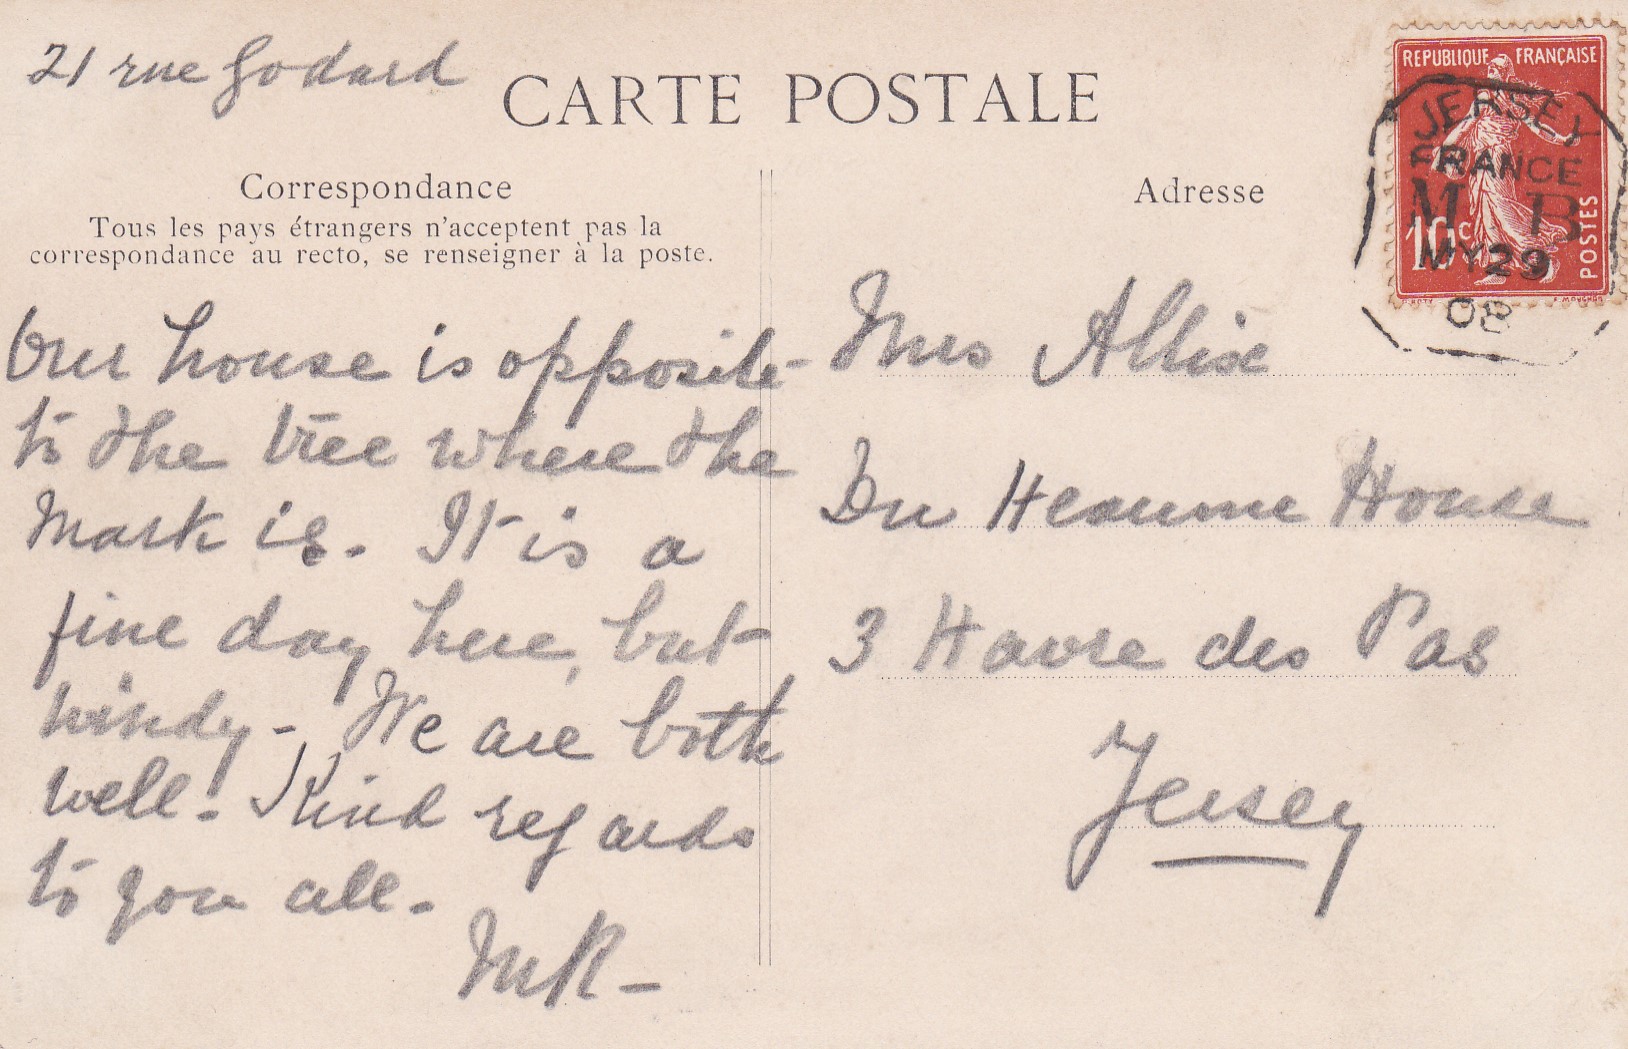 21 rue Godard
CARTE POSTALE
Correspondance
Tous les pays étrangers n'acceptent pas la
correspondance au recto, se renseigner à la poste.
Our house is opposite
to the tree where the
mark is. It is a
fine day here, but
windy - We are both
well. Kind regards
to you all.
MR -
Adresse
Mrs Allix
Du Heaume House
3 Havre des Pas
Jersey
REPUBLIQUE FRANÇAISE
10c
POSTES
JERSEY
FRANCE
M B
MY 29
08